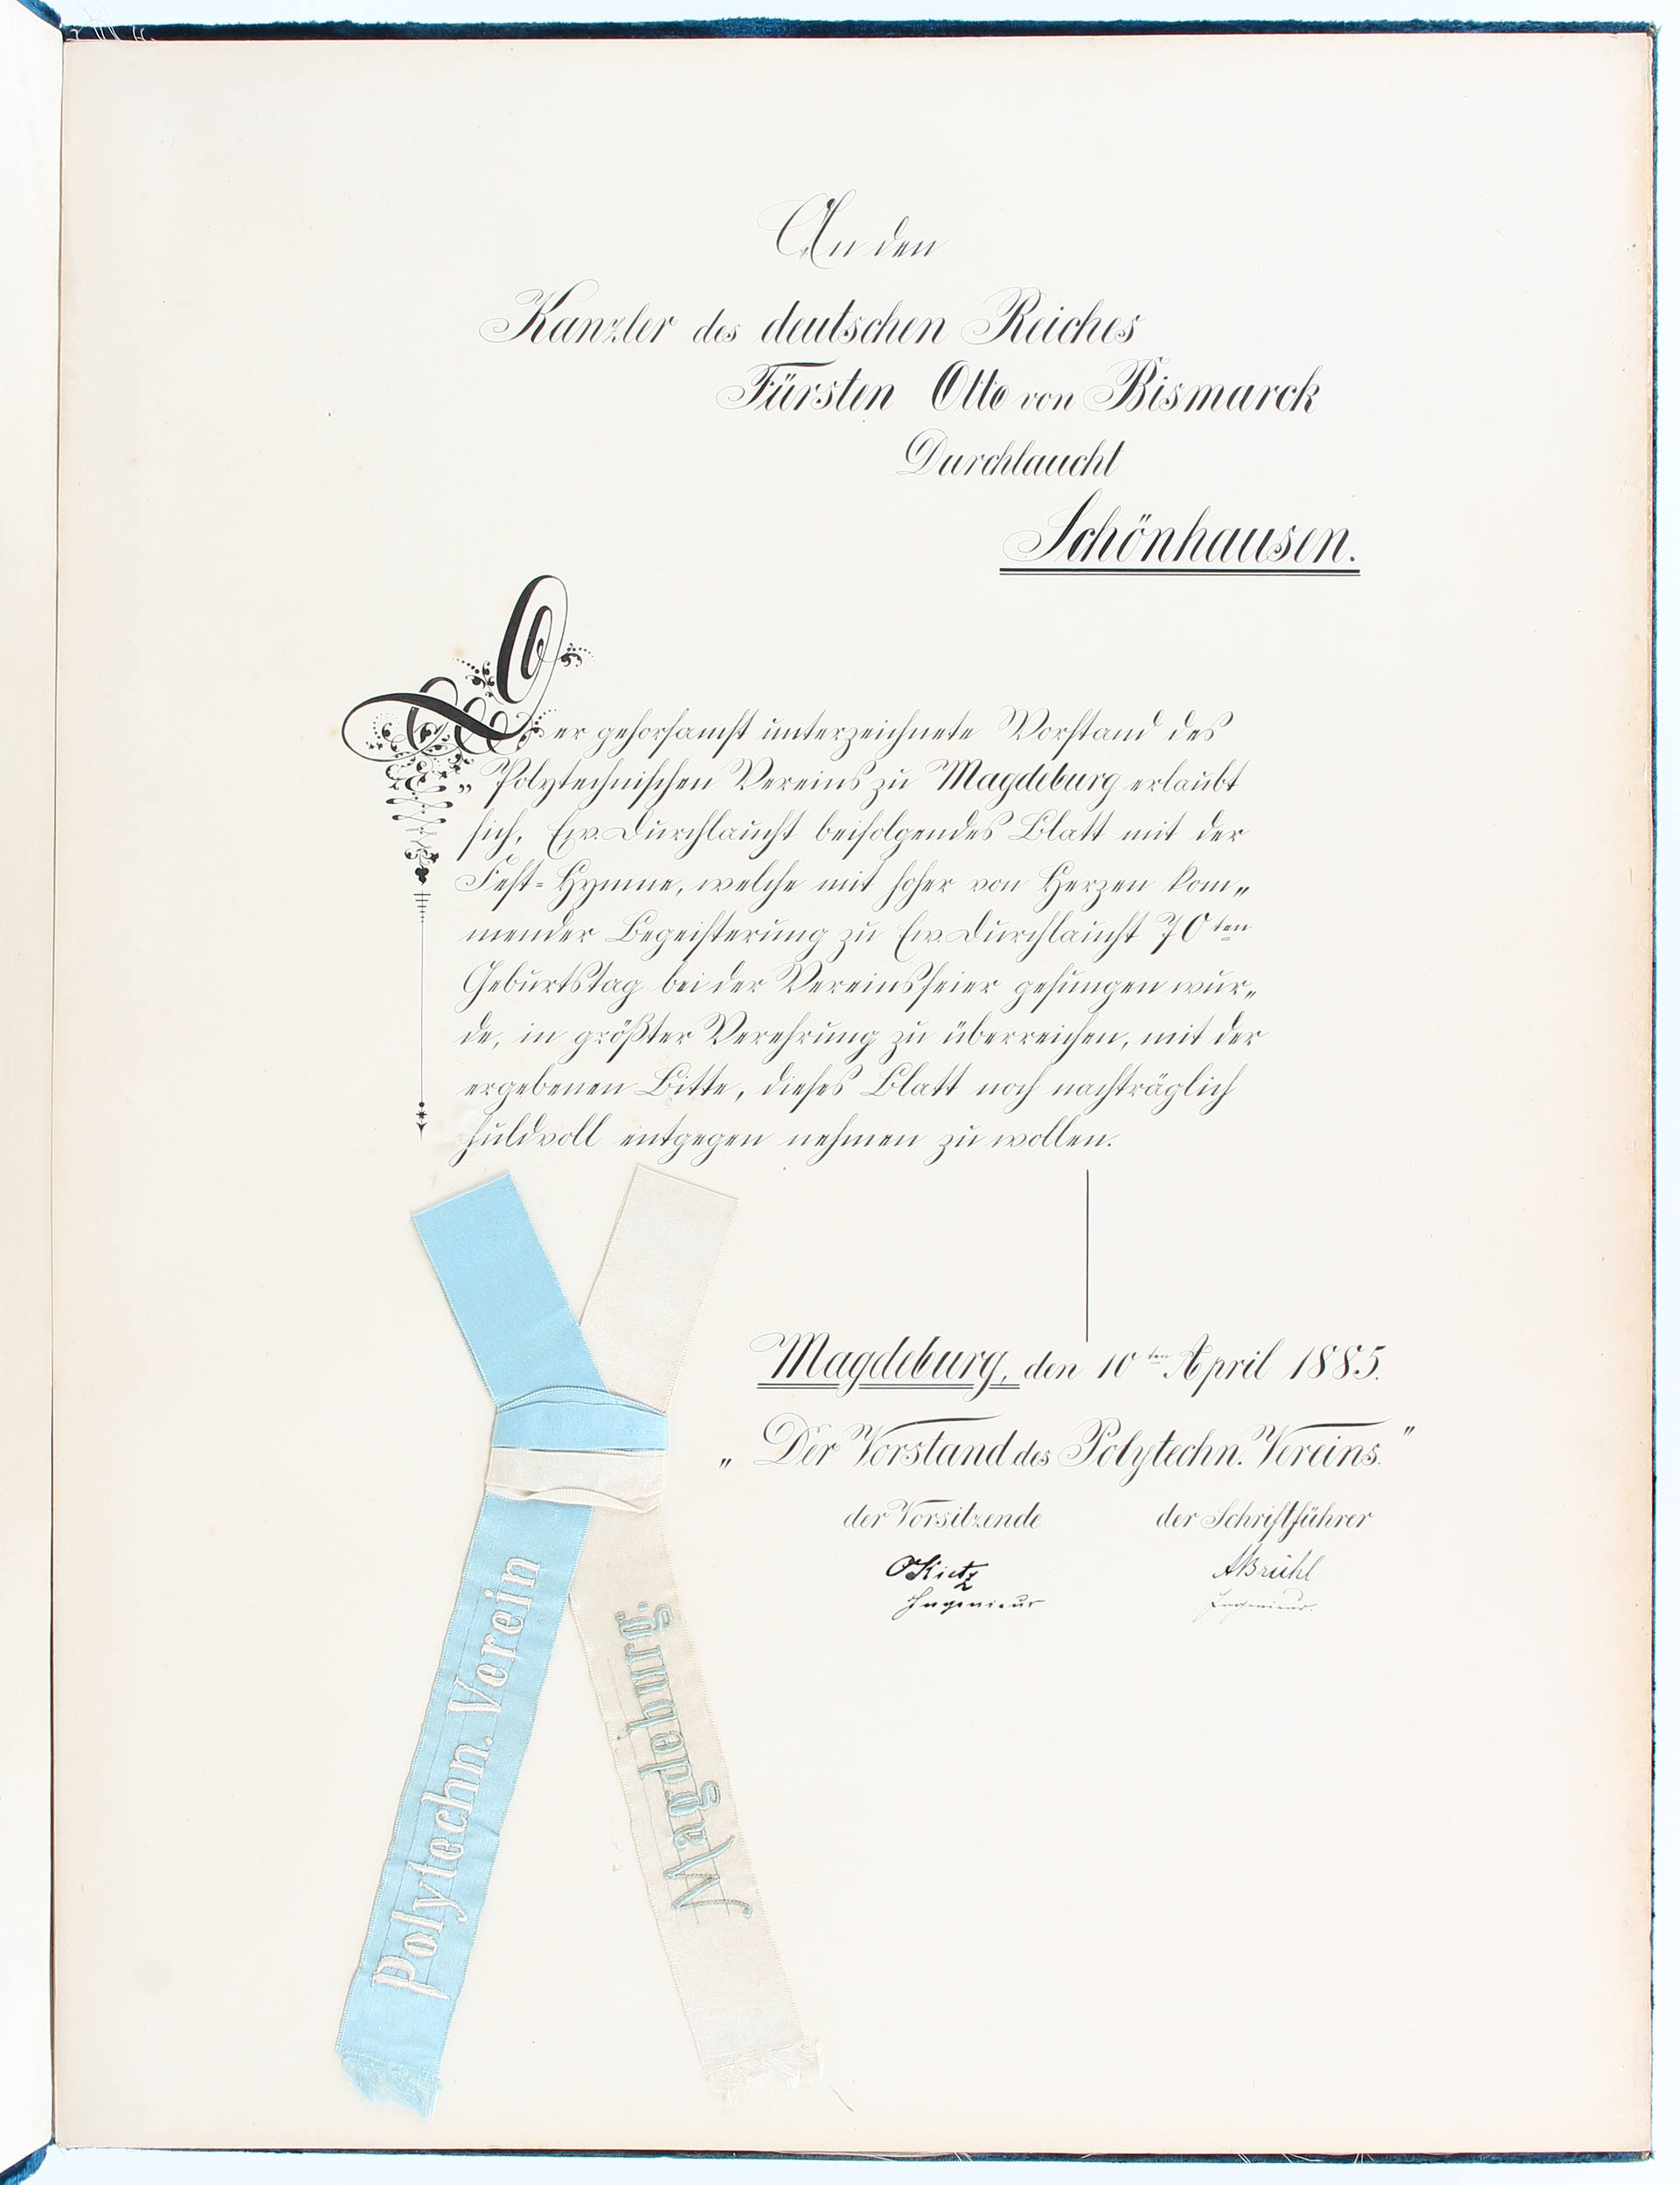 An den
Kanzler des deutschen Reiches
Fürsten Otto von Bismarck
Durchlaucht
Schönhausen.
Der gehorsamst unterzeichnete Vorstand des
„Polytechnischen Vereins zu Magdeburg erlaubt
sich, Ew. Durchlaucht beifolgendes Blatt mit der
Fest-Hymne, welche mit hoher von Herzen kom„
mender Begeisterung zu Ew. Durchlaucht 70ten
Geburtstag bei der Vereinsfeier gesungen wur„
de, in größter Verehrung zu überreichen, mit der
ergebenen Bitte, dieses Blatt noch nachträglich
huldvoll entgegen nehmen zu wollen.
Magdeburg, den 10ten April 1885.
„Der Vorstand des Polytechn. Vereins."
der Vorsitzende der Schriftführer
OKietz ABrühl
Ingenieur Ingenieur.
Polytechn. Verein
Magdeburg.